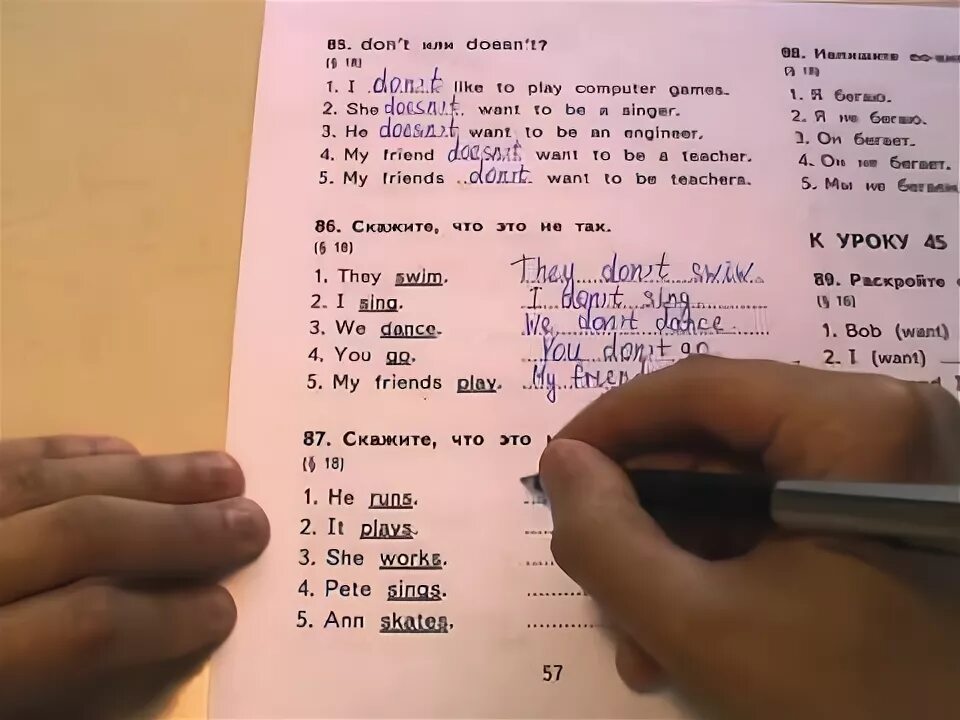 85. don't или doesn't?
(§ 18)
1. I don't like to play computer games.
2. She doesn't want to be a singer.
3. He doesn't want to be an engineer.
4. My friend doesn't want to be a teacher.
5. My friends don't want to be teachers.
86. Скажите, что это не так.
(§ 18)
1. They swim. They don't swim.
2. I sing. I don't sing
3. We dance. We don't dance.
4. You go. You don't go
5. My friends play. My
87. Скажите, что это
(§ 18)
1. He runs.
2. It plays.
3. She works.
4. Pete sings.
5. Ann skates.
57
88.
(§ 18)
1. Я бегаю.
2. Я не бегаю.
3. Он бегает.
4. Он не бегает.
5. Мы не
К УРОКУ 45
89. Раскройте
(§ 16)
1. Bob (want)
2. I (want)